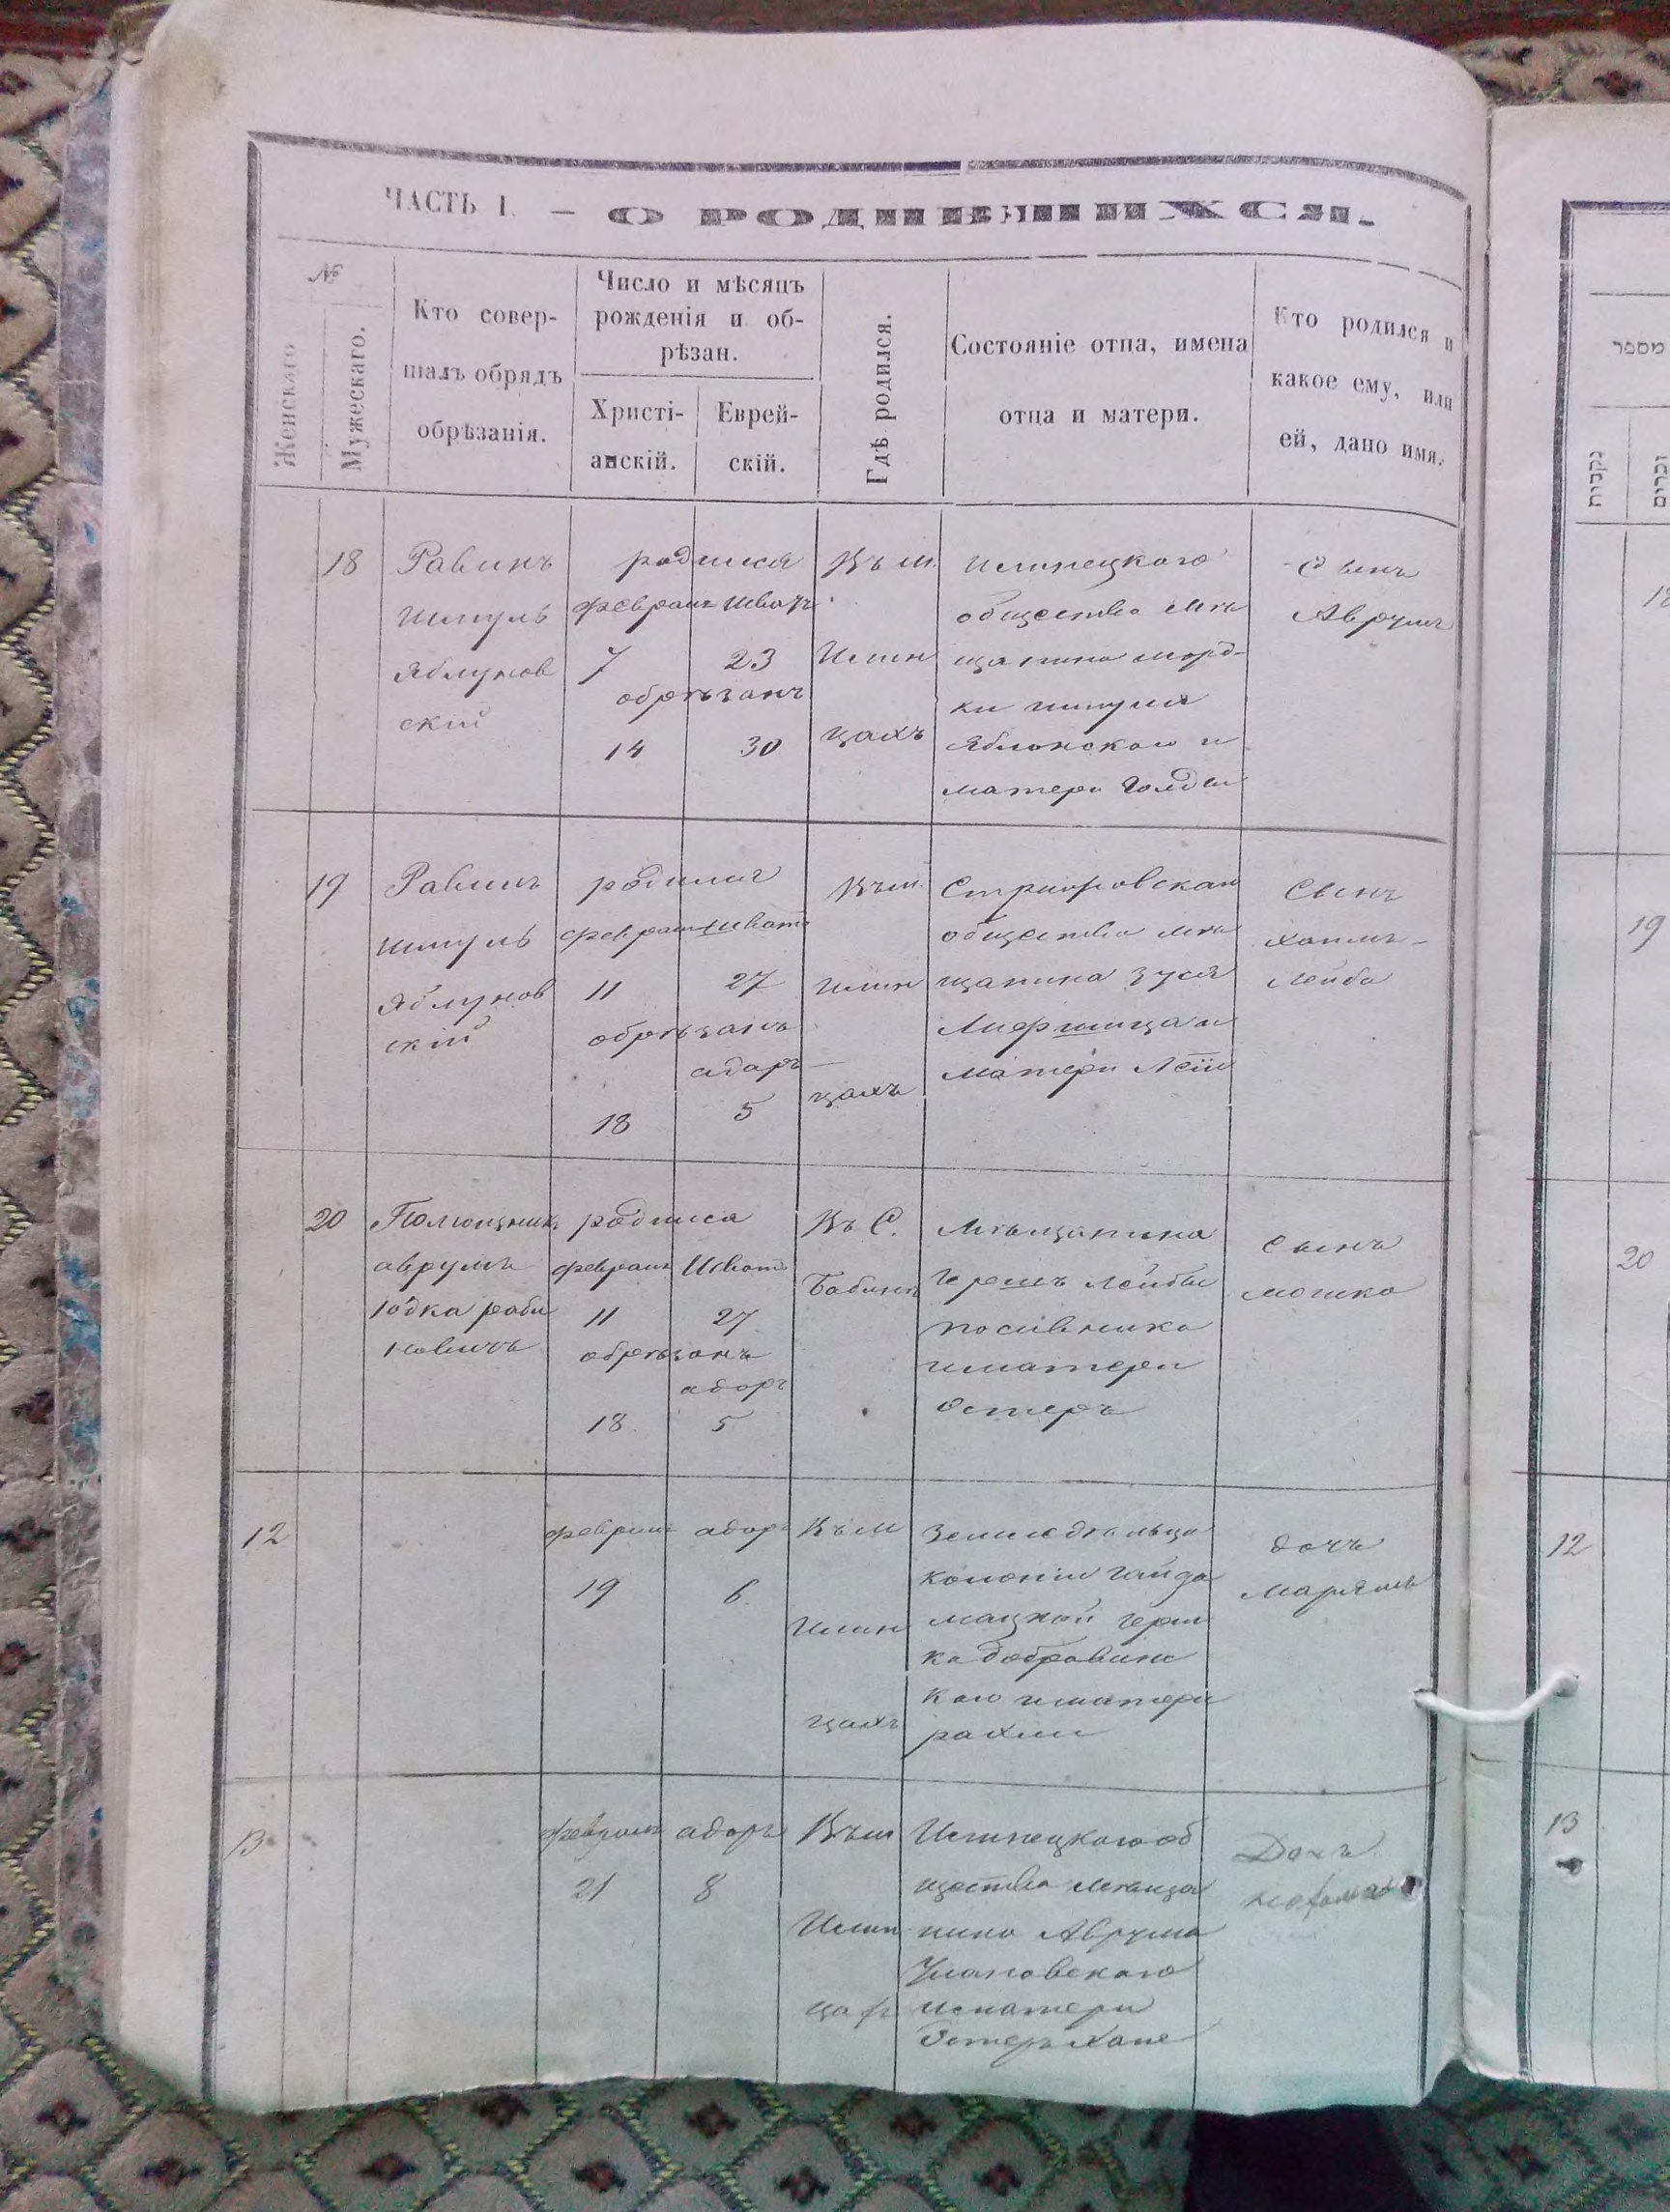 ЧАСТЬ I. — О РОДИВШИХСЯ.
№
Женскаго
Мужескаго.
Кто совер-
шалъ обрядъ
обрѣзанія.
Число и мѣсяцъ
рожденія и об-
рѣзан.
Христі-
анскій.
Еврей-
скій.
Гдѣ родился.
Состояніе отца, имена
отца и матери.
Кто родился и
какое ему, или
ей, дано имя.
18
Равинъ
Шмуль
Яблунов
скій
родился
февраля Шватъ
7 23
обрѣзанъ
14 30
Въ м.
Илин
цахъ
Илинецкого
общества мѣ
щанина морд-
ки шмуля
Яблонского и
матери Голды
Сынъ
Аврумъ
19
Равинъ
Шмуль
Яблунов
скій
родился
февраля шватъ
11 27
обрѣзанъ
адаръ
18 5
Въ м.
Илин
цахъ
общества мѣ
щанина Зуся
матери Леіи
Сынъ
хаимъ-
Лейба
20
Помощникъ
аврумъ
Юдка раби
новичъ
родился
февраля Шватъ
11 27
обрѣзанъ
адаръ
18 5
Въ С.
Бабинъ
Мѣщанина
Гершъ Лейбы
иматери
Естеръ
Сынъ
мошко
12
февраля адаръ
19 6
Въ м
Илин
цахъ
земледѣльца
колоніи Гайда
мацкой Герш
ка добровинс
каго иматери
рахли
дочь
Маріямъ
13
февраля адаръ
21 8
Въ м
Илин
цахъ
Илинецкого об
щества мѣща
нина Аврума
Улановского
иматери
Естеръ Хане
Дочь
מספר
נקבות
זכרים
18
19
20
12
13